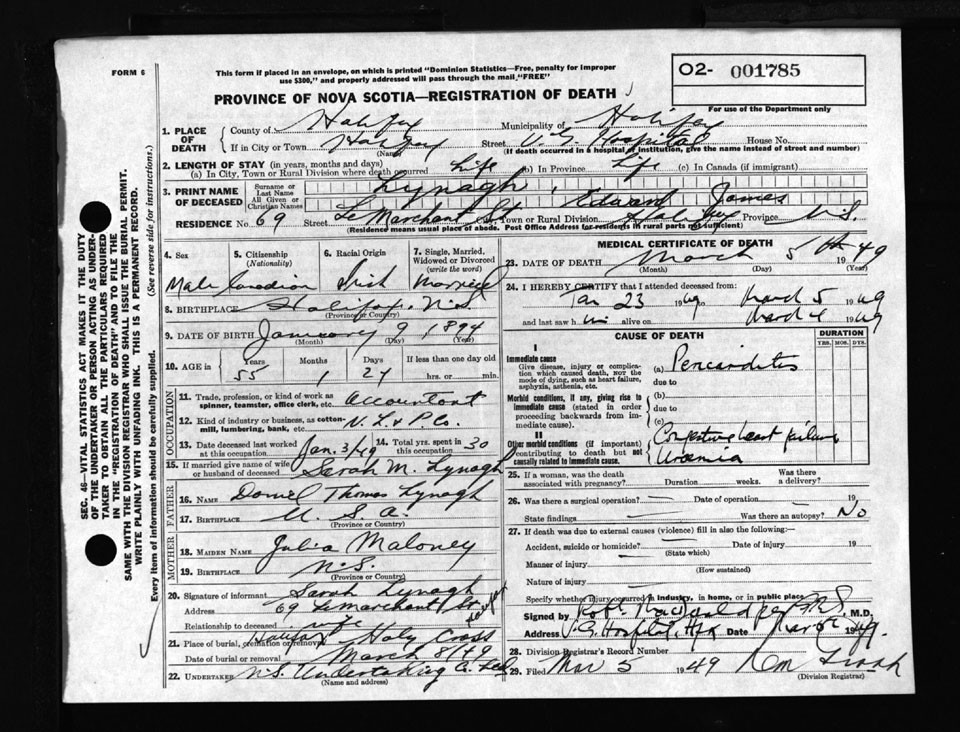 FORM 6
This form if placed in an envelope, on which is printed "Dominion Statistics—Free, penalty for improper
use $300," and properly addressed will pass through the mail, "FREE"
O2- 001785
PROVINCE OF NOVA SCOTIA—REGISTRATION OF DEATH
For use of the Department only
1. PLACE OF DEATH
County of Halifax Municipality of Halifax
If in City or Town Halifax Street V. G. Hospital House No.
(Name) (If death occurred in a hospital or institution, give the name instead of street and number)
2. LENGTH OF STAY (in years, months and days)
(a) In City, Town or Rural Division where death occurred Life (b) In Province Life (c) In Canada (if immigrant)
3. PRINT NAME OF DECEASED
Surname or Last Name Lynagh
All Given or Christian Names Edward James
RESIDENCE No 69 Street LeMarchant St. Town or Rural Division Halifax Province N.S.
(Residence means usual place of abode. Post Office Address for residents in rural parts not sufficient)
4. Sex
Male
5. Citizenship (Nationality)
Canadian
6. Racial Origin
Irish
7. Single, Married, Widowed or Divorced (write the word)
Married
8. BIRTHPLACE Halifax, N.S.
(Province or Country)
9. DATE OF BIRTH January 9 1894
(Month) (Day) (Year)
10. AGE in Years Months Days If less than one day old
55 1 27 hrs. or min.
OCCUPATION
11. Trade, profession, or kind of work as spinner, teamster, office clerk, etc. Accountant
12. Kind of industry or business, as cotton-mill, lumbering, bank, etc. N. L. & P. Co.
13. Date deceased last worked at this occupation Jan. 3/49
14. Total yrs. spent in this occupation 30
15. If married give name of wife or husband of deceased Sarah M. Lynagh
FATHER
16. NAME Daniel Thomas Lynagh
17. BIRTHPLACE U. S. A.
(Province or Country)
MOTHER
18. MAIDEN NAME Julia Maloney
19. BIRTHPLACE N.S.
(Province or Country)
20. Signature of informant Sarah Lynagh
Address 69 LeMarchant St.
Relationship to deceased wife
21. Place of burial, cremation or removal Halifax Holy Cross
Date of burial or removal March 8/49
22. UNDERTAKER N.S. Undertaking Co. Ltd
(Name and address)
MEDICAL CERTIFICATE OF DEATH
23. DATE OF DEATH March 5th 1949
(Month) (Day) (Year)
24. I HEREBY CERTIFY that I attended deceased from:
Jan 23 1949 to March 5 1949
and last saw him alive on March 4 1949
CAUSE OF DEATH
DURATION
YRS. MOS. DYS.
I
Immediate cause
Give disease, injury or complication which caused death, NOT the mode of dying, such as heart failure, asphyxia, asthenia, etc.
(a) Pericarditis
due to
Morbid conditions, if any, giving rise to immediate cause (stated in order proceeding backwards from immediate cause)
(b)
due to
(c)
II
Other morbid conditions (if important) contributing to death but not causally related to immediate cause.
Congestive heart failure
Uraemia
25. If a woman, was the death associated with pregnancy? Duration weeks. Was there a delivery?
26. Was there a surgical operation? Date of operation 19
State findings Was there an autopsy? No
27. If death was due to external causes (violence) fill in also the following:—
Accident, suicide or homicide? Date of injury 19
(State which)
Manner of injury
(How sustained)
Nature of injury
Specify whether injury occurred in industry, in home, or in public place
Signed by Robt. Macdonald per M.D.
Address V. G. Hospital, Hfx Date March 1949.
28. Division Registrar's Record Number
29. Filed Mar 5 1949
(Division Registrar)
SEC. 46—VITAL STATISTICS ACT MAKES IT THE DUTY
OF THE UNDERTAKER OR PERSON ACTING AS UNDERTAKER
TO OBTAIN ALL THE PARTICULARS REQUIRED
IN THE "REGISTRATION OF DEATH" AND TO FILE THE
SAME WITH THE DIVISION REGISTRAR WHO SHALL ISSUE THE BURIAL PERMIT.
WRITE PLAINLY WITH UNFADING INK. THIS IS A PERMANENT RECORD.
Every item of information should be carefully supplied. (See reverse side for instructions.)